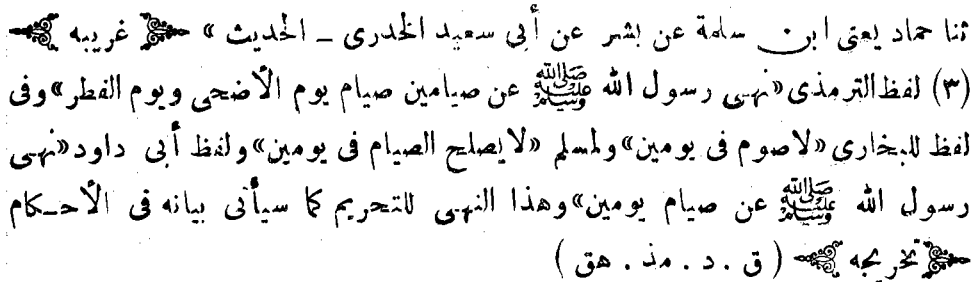 ثنا حماد يعنى ابن سلمة عن بشر عن أبى سعيد الخدرى ــ الحديث » ﴿ غريبه ﴾
(٣) لفظ الترمذى «نهى رسول الله ﷺ عن صيامين صيام يوم الأضحى ويوم الفطر» وفى
لفظ للبخارى «لاصوم فى يومين» ولمسلم «لايصلح الصيام فى يومين» ولفظ أبى داود «نهى
رسول الله ﷺ عن صيام يومين» وهذا النهى للتحريم كما سيأتى بيانه فى الأحكام
﴿ تخريجه ﴾ ( ق . د . مذ . هق )